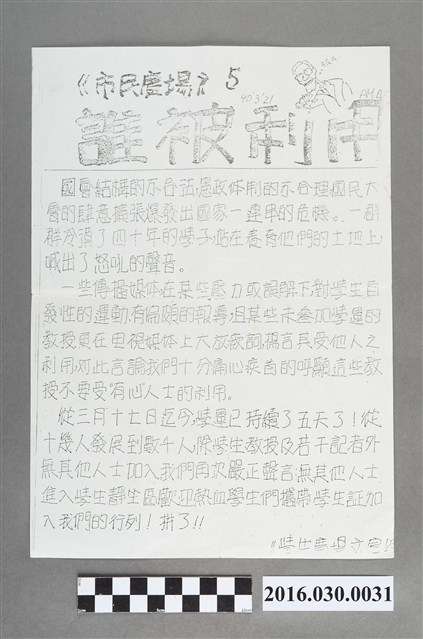 《市民廣場》 5
90 3'21
誰被利用
國會結構的不合法,憲政体制的不合理國民大
會的肆意擴張爆發出國家一連串的危機。一群
群冷漠了四十年的學子,站在養育他們的土地上
喊出了怒吼的聲音。
一些傳播媒体在某些壓力或誤解下對學生自
發性的運動有偏頗的報導,且某些未參加學運的
教授更在電視媒体上大放厥詞,揚言其受他人之
利用,对此言論我們十分痛心疾首的呼籲這些教
授不要受有心人士的利用。
從三月十七日迄今,學運已持續了五天了!從
十幾人發展到數千人,除學生教授及若干記者外
無其他人士加入我們再次嚴正聲言無其他人士
進入學生靜坐區歡迎熱血學生們攜帶學生証加
入我們的行列!拼了!!
2016.030.0031